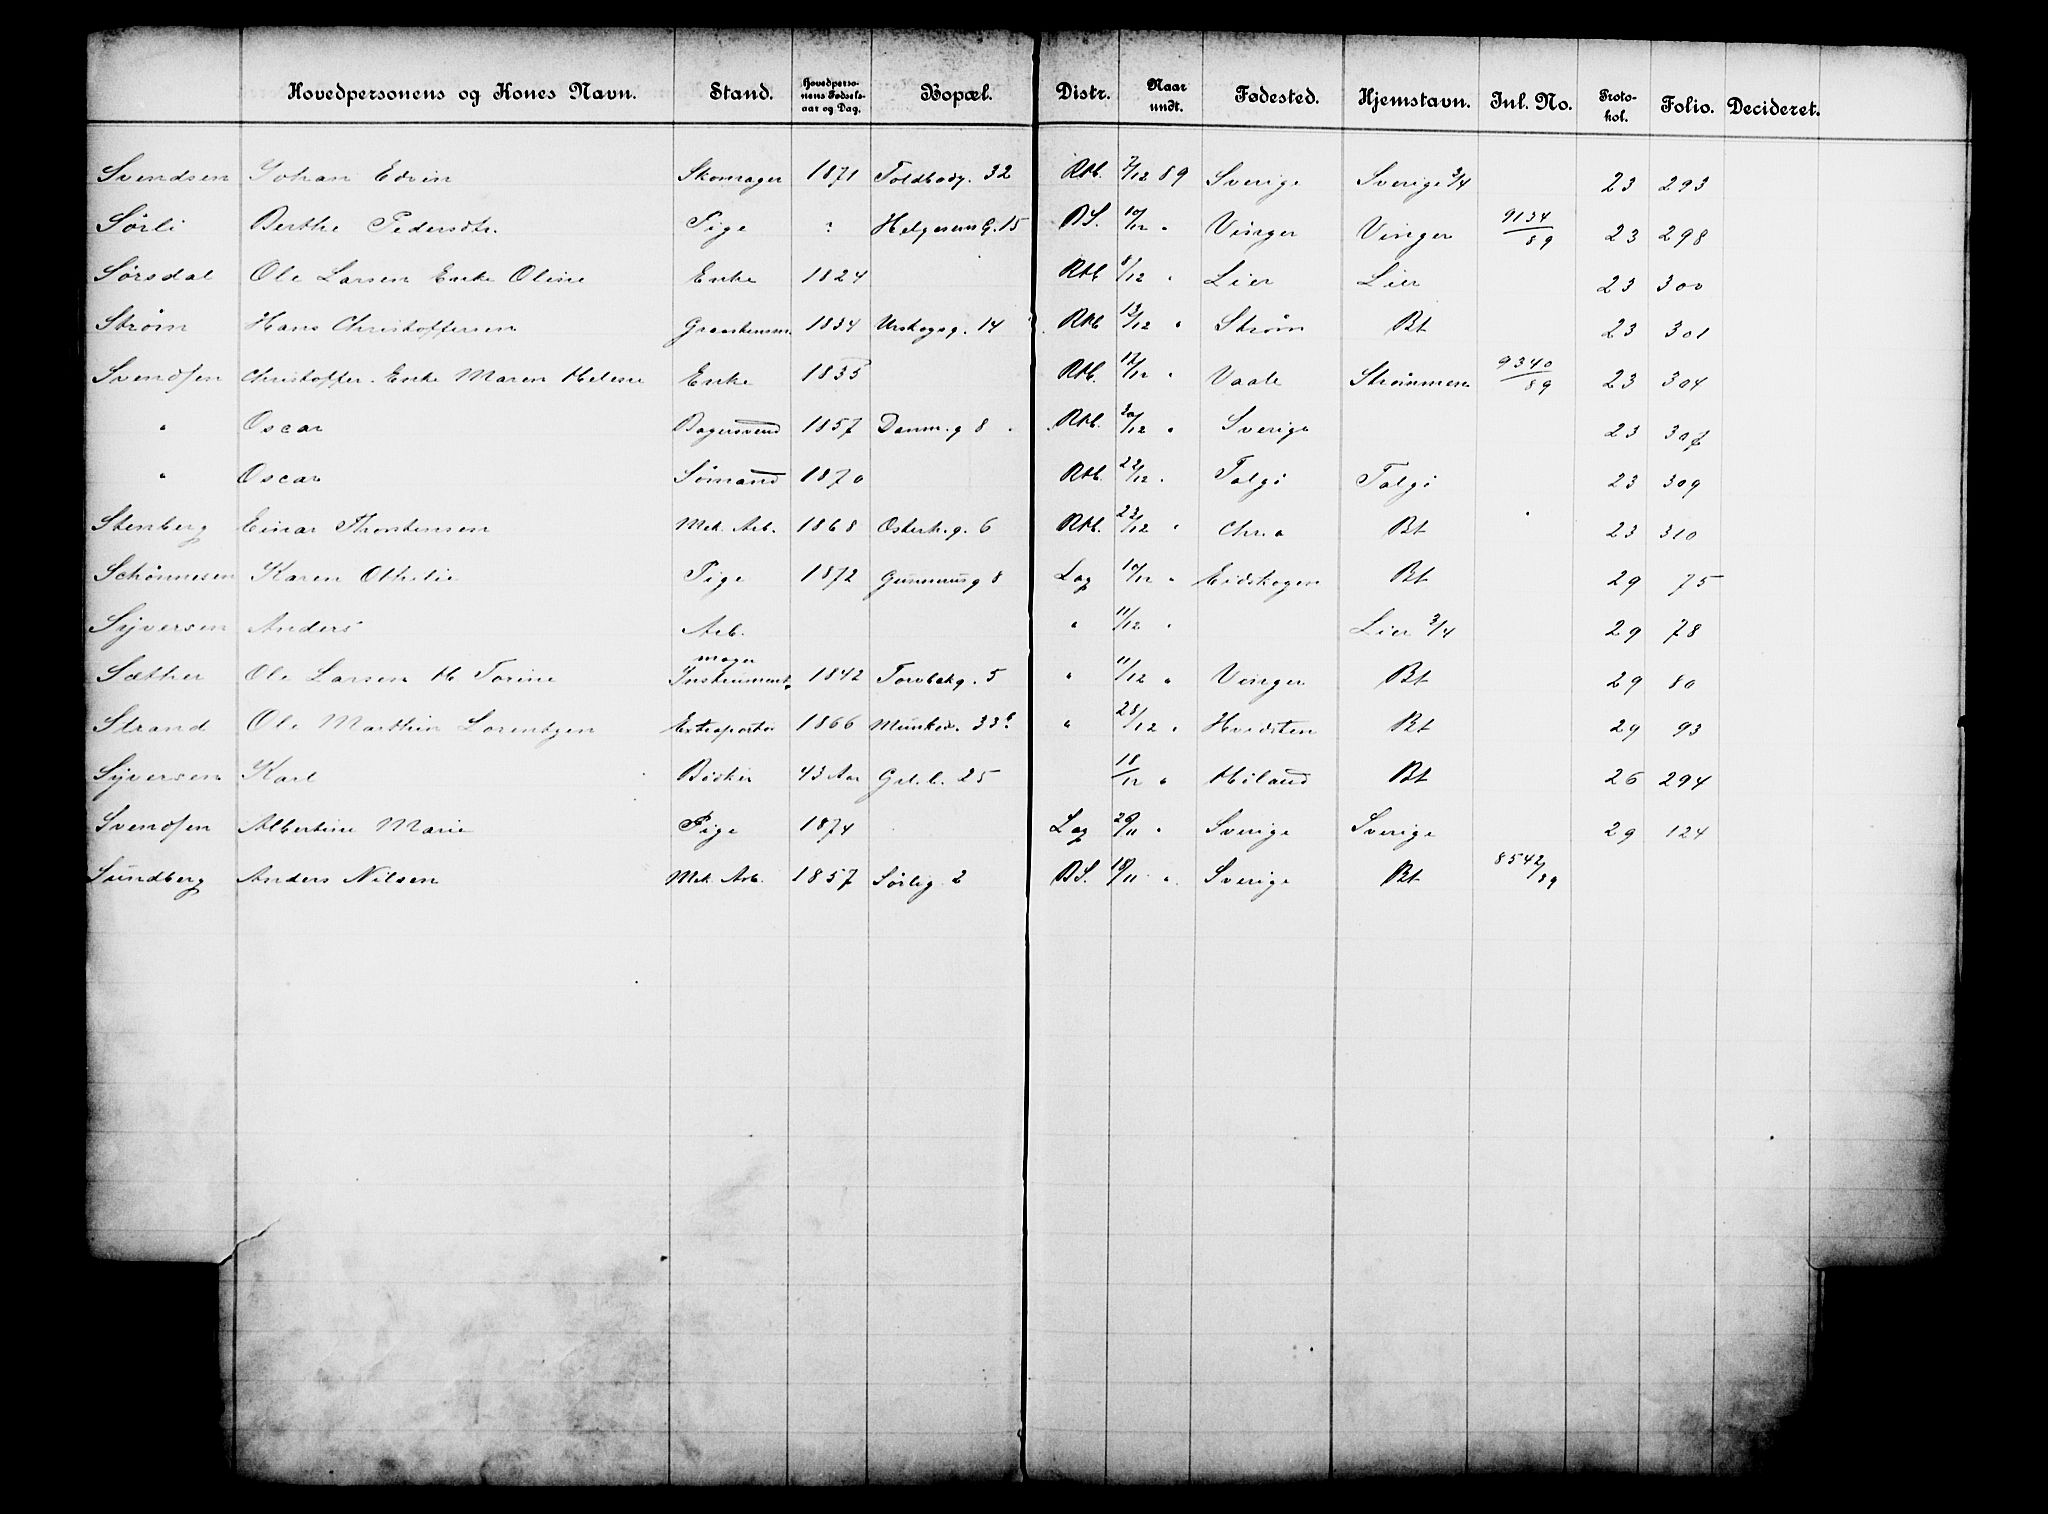 Hovedpersonens og Kones Navn. Stand. Hovedpersonens Fødselsaar og Dag. Bopæl. Distr. Naar undt. Fødested. Hjemstavn. Inl. No. Protokol. Folio. Decideret.
Svendsen Johan Edvin Skomager 1871 Toldbodg. 32 Rtb. 7/12 89 Sverige Sverige 3/4 23 293
Sørli Berthe Pedersdtr. Pige " Helgesens G. 15 BS. 10/12 " Vinger Vinger 9134/89 23 298
Sørsdal Ole Larsen Enke Oline Enke 1824 Rtb 8/12 " Lier Lier 23 300
Strøm Hans Christoffersen 1834 Urskogsg. 14 Rtb 13/12 " Strøm Bt 23 301
Svendsen Christoffer. Enke Maren Helene Enke 1835 Rtb. 17/12 " Vaale Strømmen 9340/89 23 304
" Oscar Bagersvend 1857 Danm.g 8 Rtb. 20/12 " Sverige 23
" Oscar Sømand 1870 Rtb. 22/12 " Talgø Talgø 23 309
Stenberg Einar Thorstensen Mek. Arb. 1868 Osterh.g. 6 Rtb. 23/12 " Chr.a Bt 23 310
Schønnesen Karen Othilie Pige 1872 8 Lag 10/12 " Eidskogen Bt 29 75
Syversen Anders Arb. " 11/12 " Lier 3/4 29 78
Sæther Ole Larsen H Torine Instrumentmager 1842 Torvbakg. 5 " 11/12 " Vinger Bt 29 80
Strand Ole Marthin Lorentzen 1866 Munked. 33 " 28/12 " Hvidsten Bt 29 93
Syversen Karl 43 Aar Grl.l. 25 18/12 " Høland Bt 26 294
Svendsen Albertine Marie Pige 1874 Lag 29/11 " Sverige Sverige 29 124
Sundberg Anders Nilsen Mek. Arb. 1857 Sørlig. 2 BS. 18/11 " Sverige Bt 8542/89